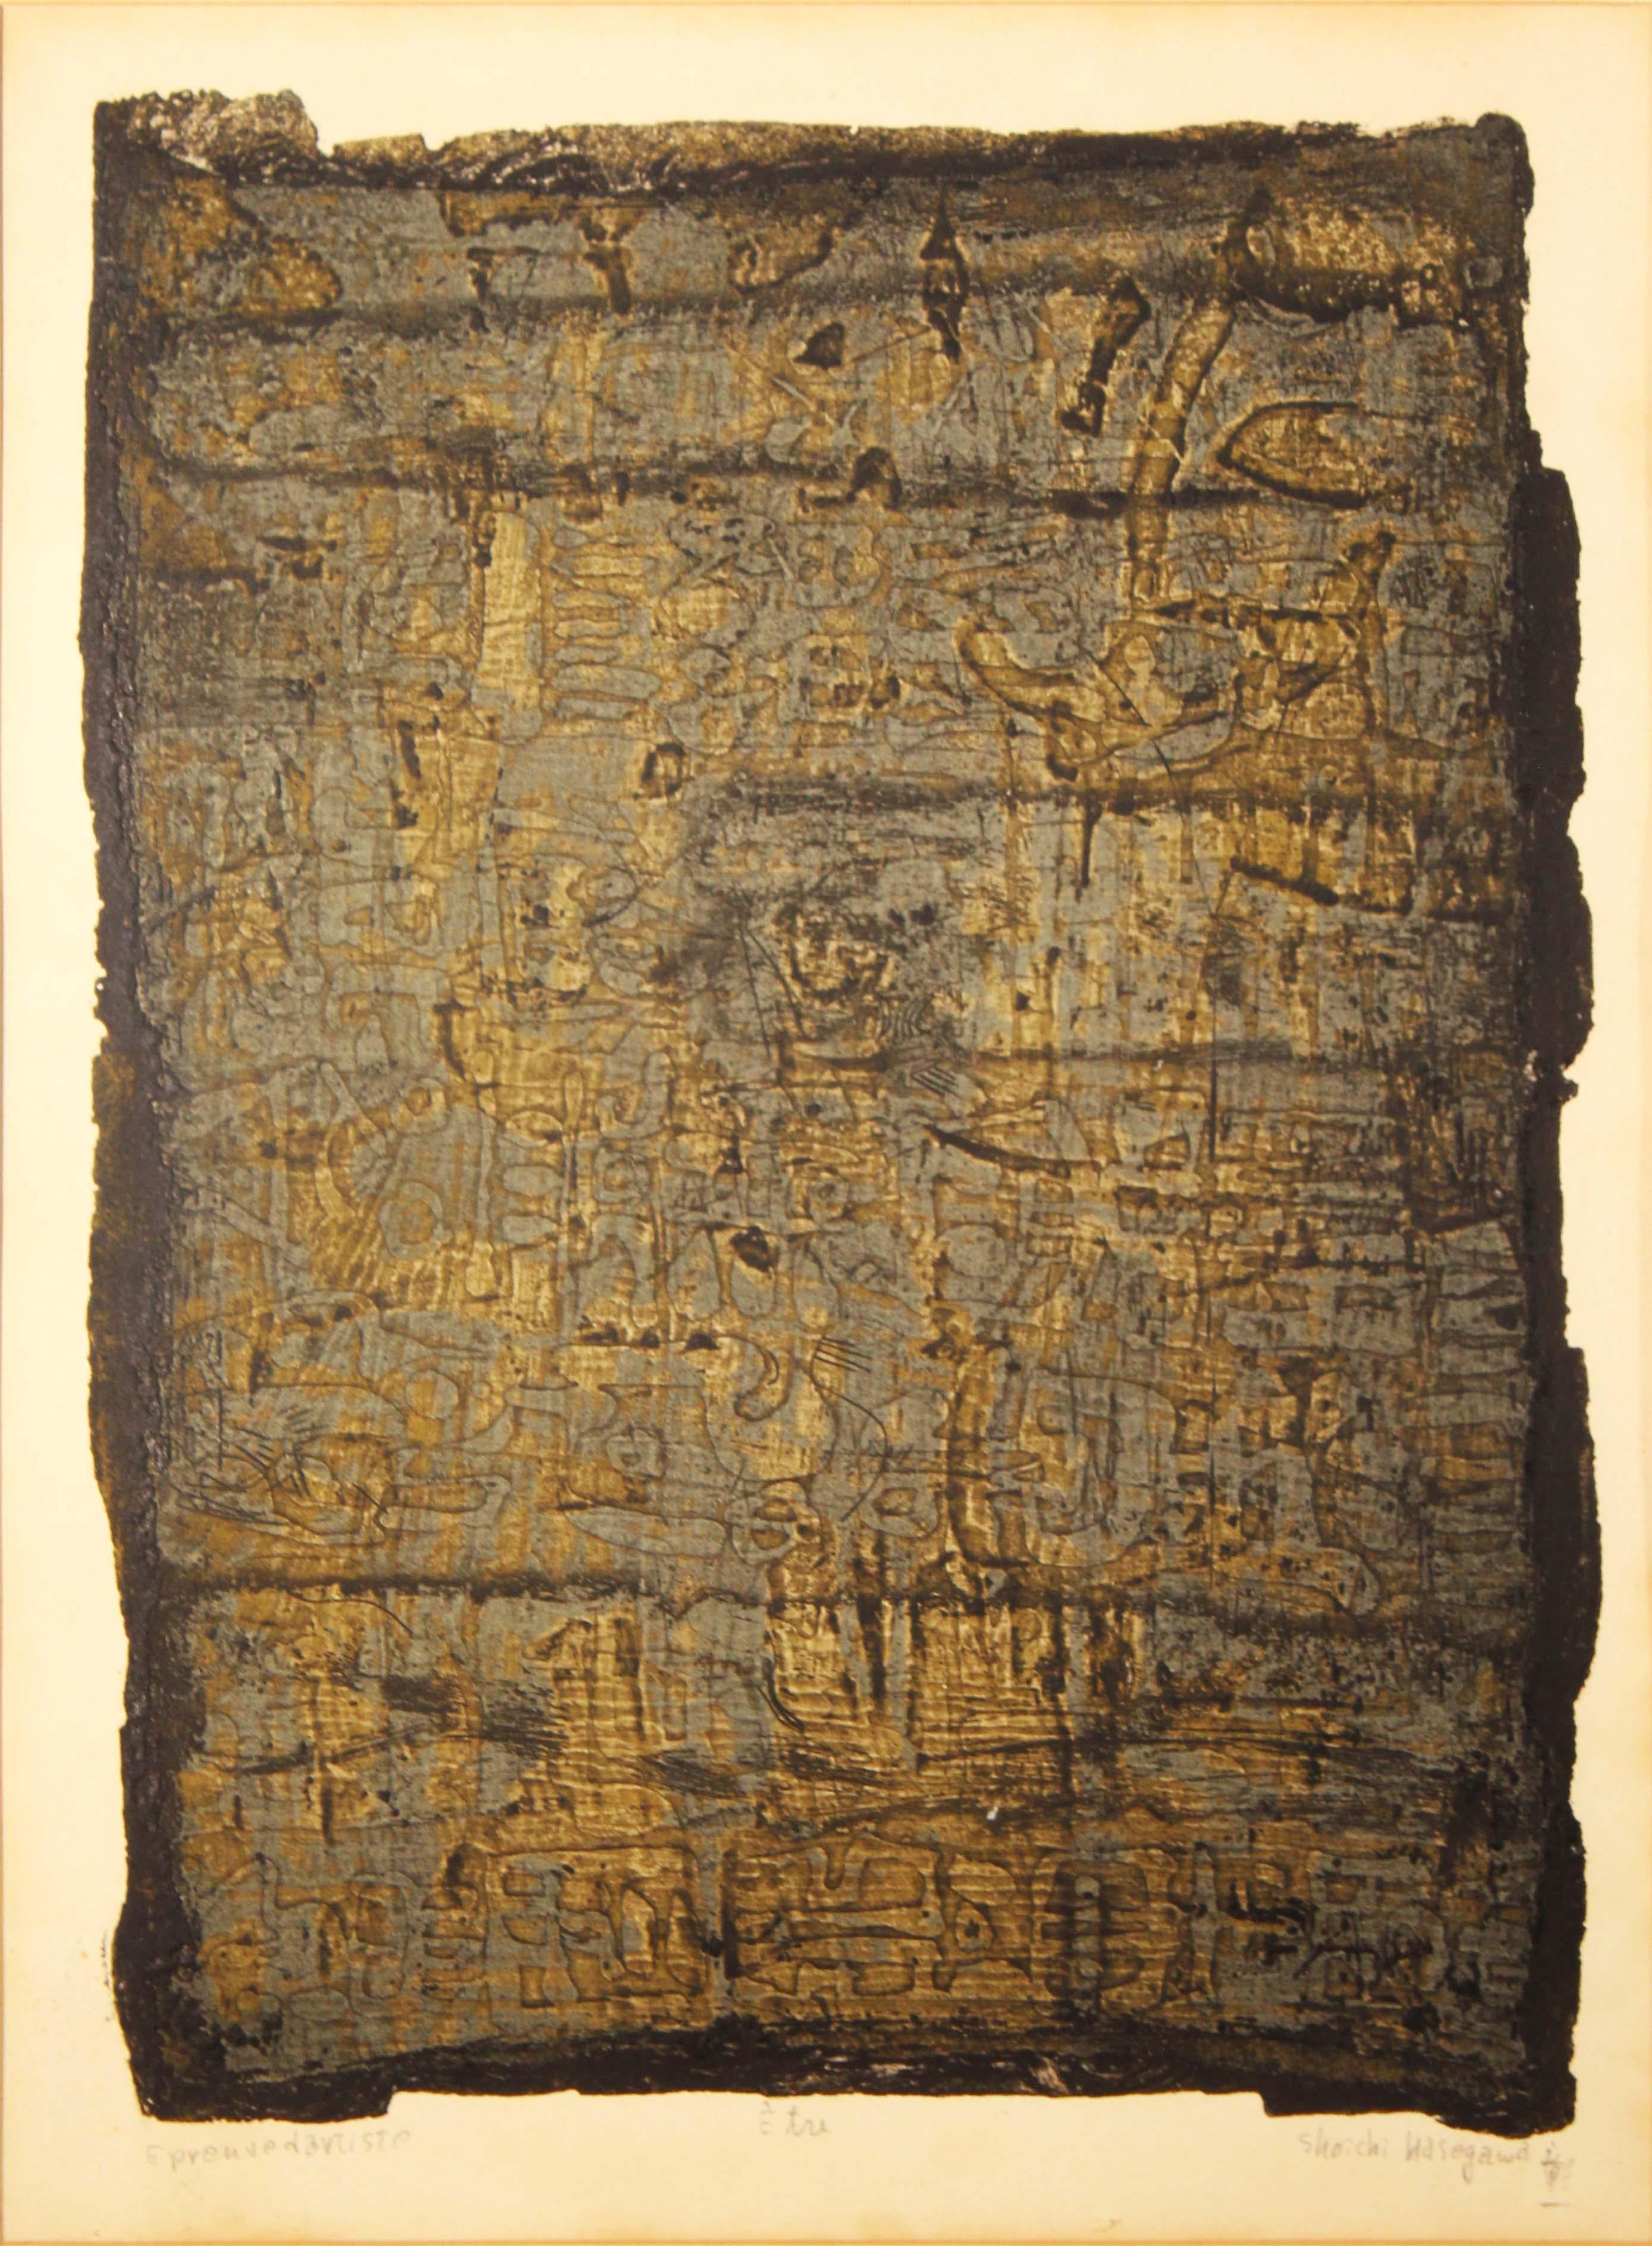 Epreuve d'artiste
Être
Shoichi Hasegawa